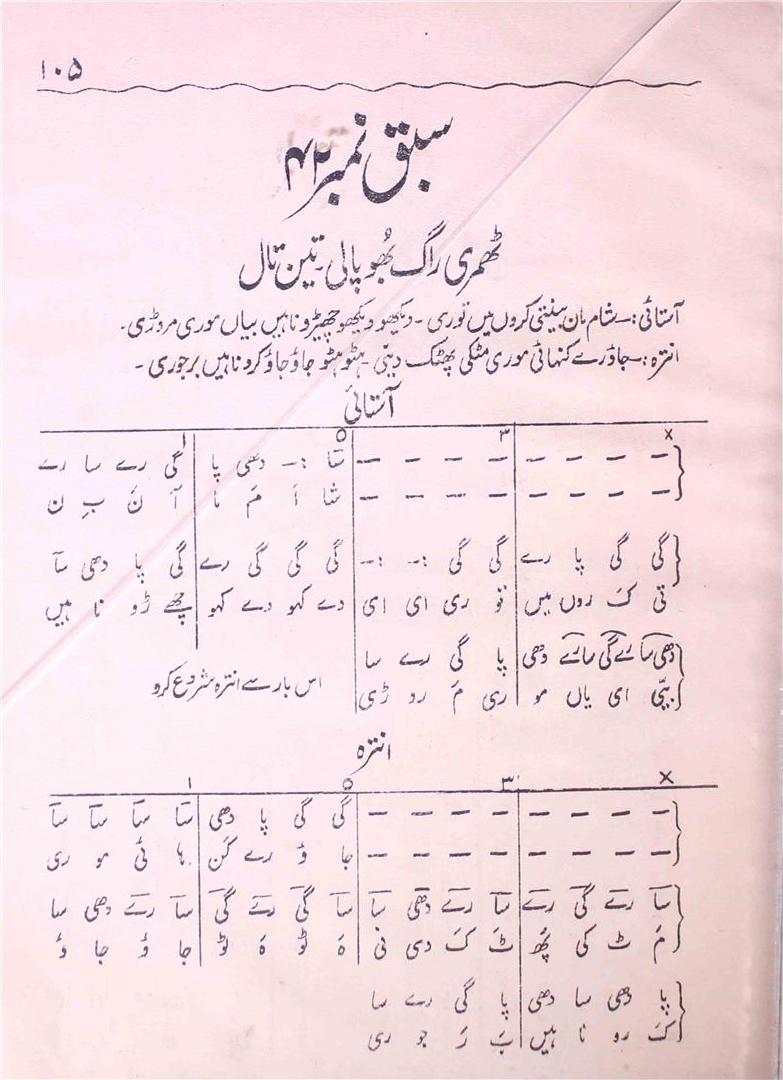 ۱۰۵
سبق نمبر ۴۲
ٹھمری راگ بھوپالی۔ تین تال
آستائی:۔ شام مان بینتی کروں میں توری ۔ دیکھو دیکھو چھیڑو ناہیں بیاں موری مروڑی۔
انترہ:۔ جاؤ رے کنہائی موری مٹکی پھٹک دینی ۔ ہٹو ہٹو جاؤ جاؤ کرو ناہیں برجوری ۔
آستائی
x ۳ o ۱
– – – – – – – – سَا :– دھی پا گی رے سا رے
– – – – – – – – شا اَ مَ ما آ نَ بِ ن
گی گی پا رے گی گی :– :– گی گی گی رے گی پا دھی سآ
تی کَ روں میں تو ری ای ای دے کھو دے کھو چھے ڑو نا ہیں
دھی سا رے گی سا رے دھی پا گی رے سا
بیّ ای یاں مو ری مَ رو ڑی اس بار سے انترہ شروع کرو
انترہ
x ۳ o ۱
– – – – – – – – گی گی پا دھی سآ سآ سآ سآ
– – – – – – – – جا ؤ رے کَن ہا ئی مو ری
سآ رے گی رے سآ رے دھی سا سآ گی رے گی سآ رے دھی سا
مَ ٹ کی پَھ ٹ کَ دی نی ہَ ٹو ہَ ٹو جا ؤ جا ؤ
پا دھی سا دھی پا گی رے سا
کَ رو نا ہیں بَ رَ جو ری